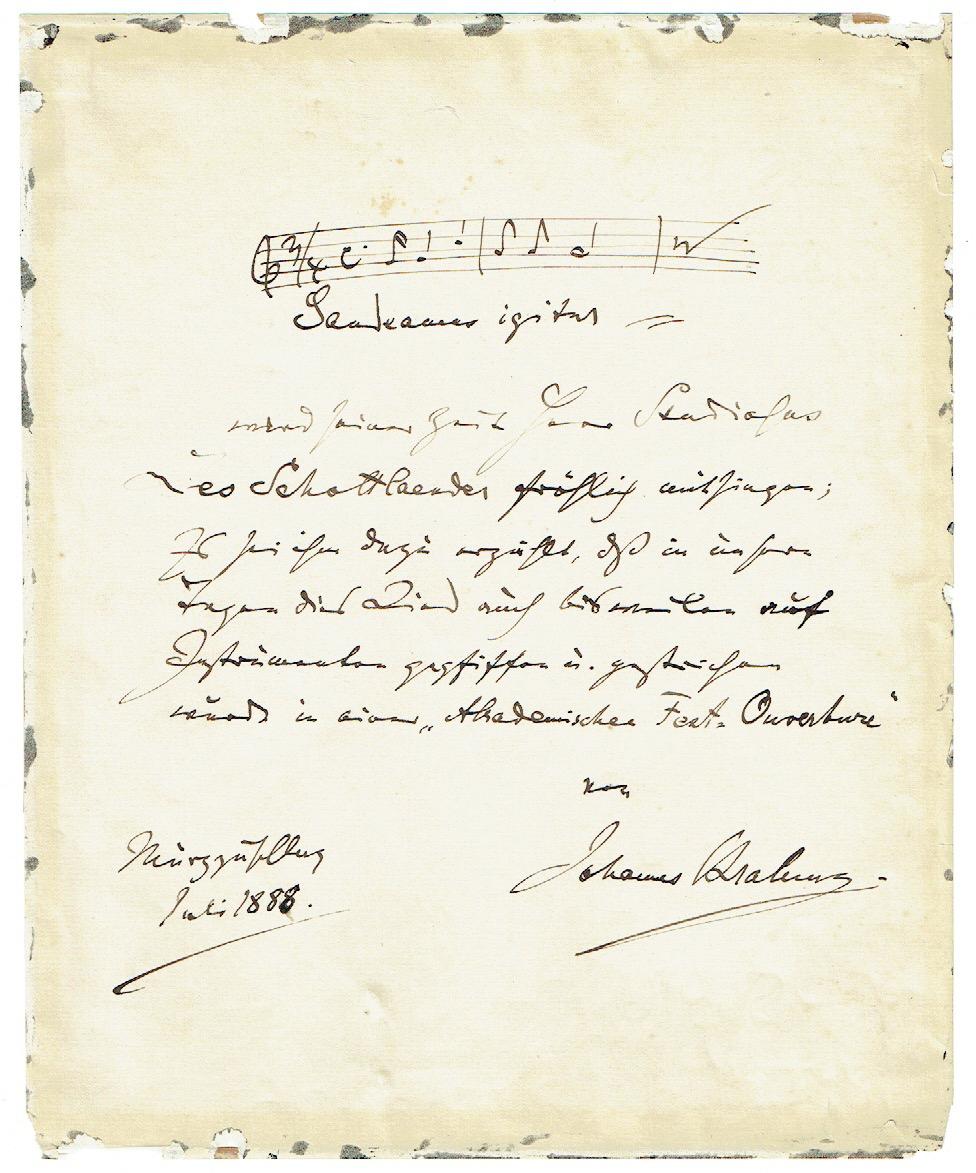 Gaudeamus igitur
wird seiner Zeit Herr Studiosus
Leo Schottlaender fröhlich mitsingen;
Es sei ihm dazu erzählt, daß in unsern
Tagen dies Lied auch bisweilen auf
Instrumenten gepfiffen u. gestrichen
wurde in einer „Akademischen Fest-Ouverture"
von
Johannes Brahms.
Mürzzuschlag
Juli 1888.